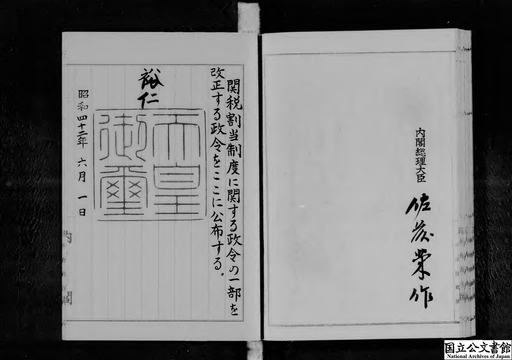 内閣総理大臣
佐藤栄作
関税割当制度に関する政令の一部を
改正する政令をここに公布する。
裕仁
天皇
御璽
昭和四十二年六月一日
内閣
国立公文書館
National Archives of Japan